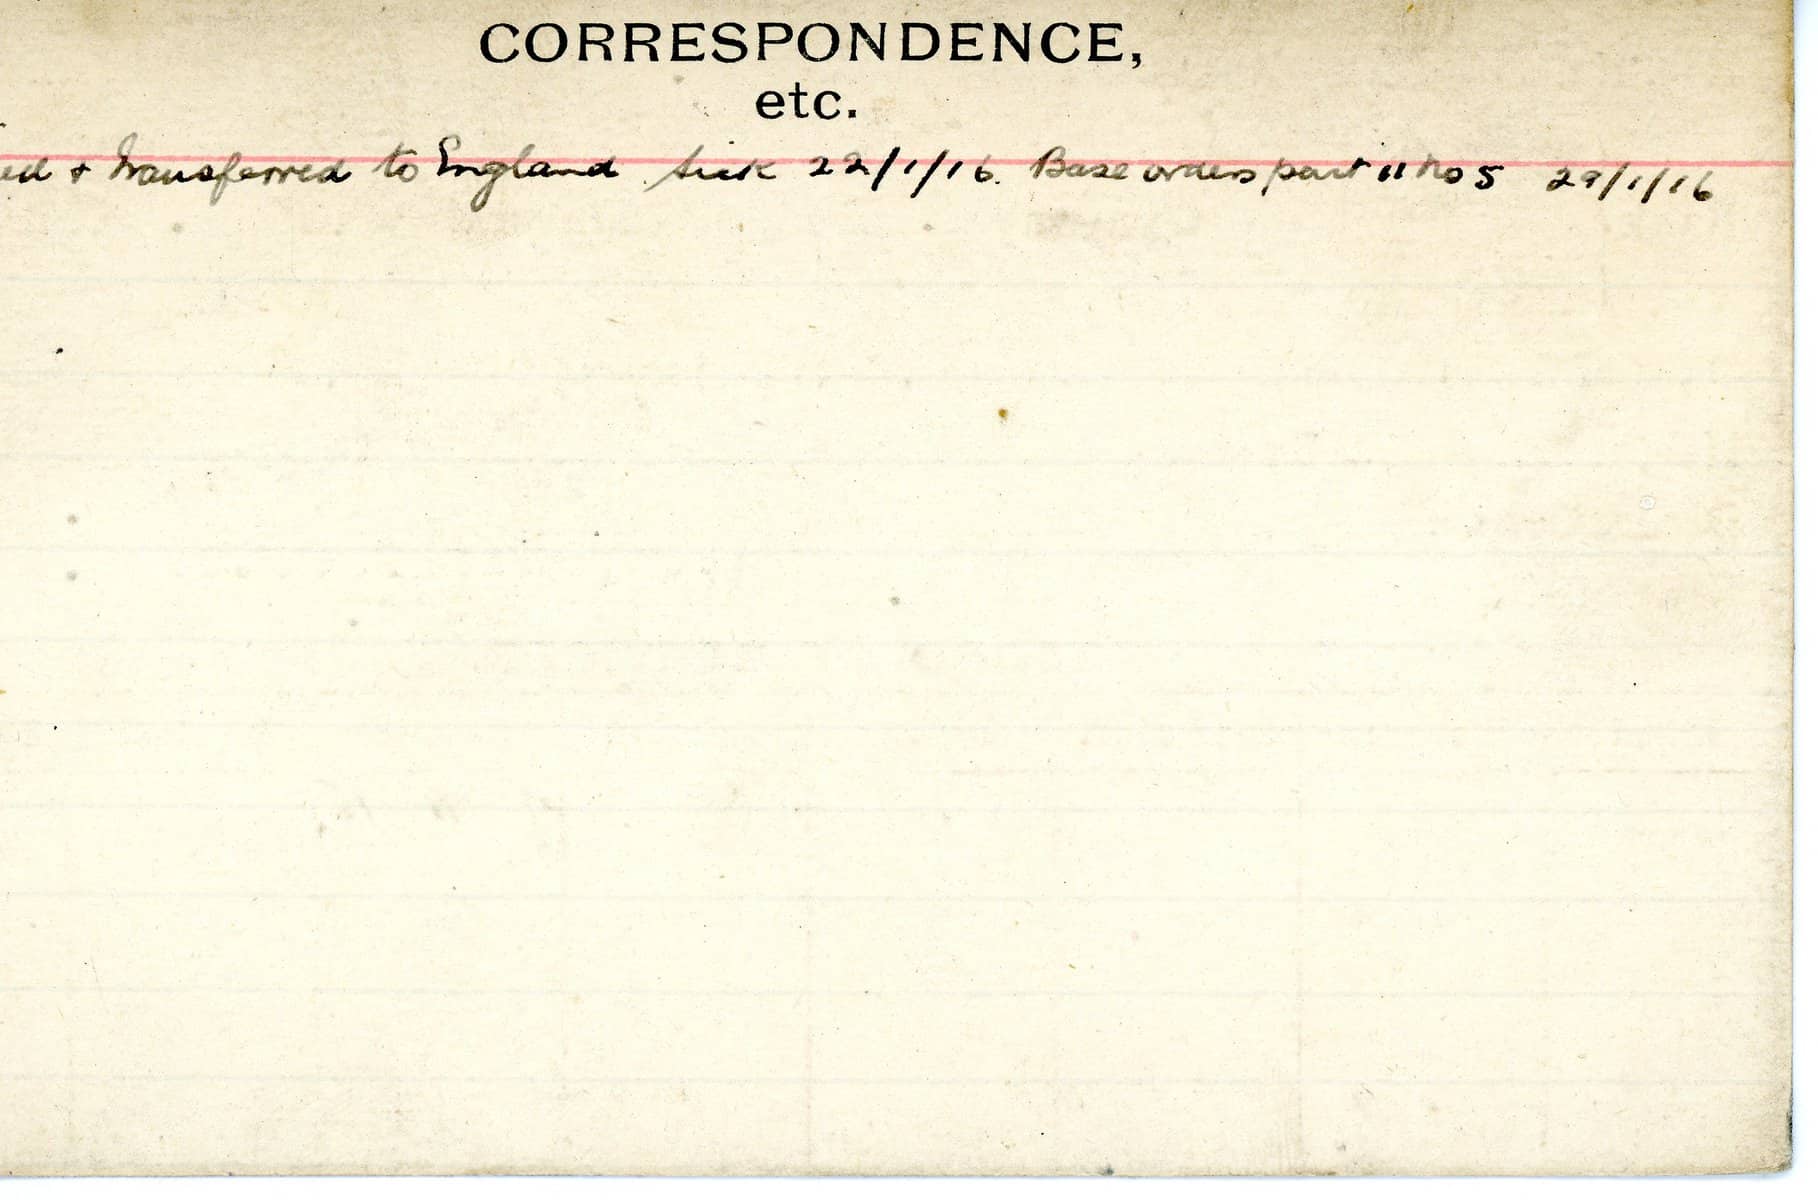 CORRESPONDENCE,
etc.
ed + transferred to England sick 22/1/16. Base orders part 11 No 5 29/1/16